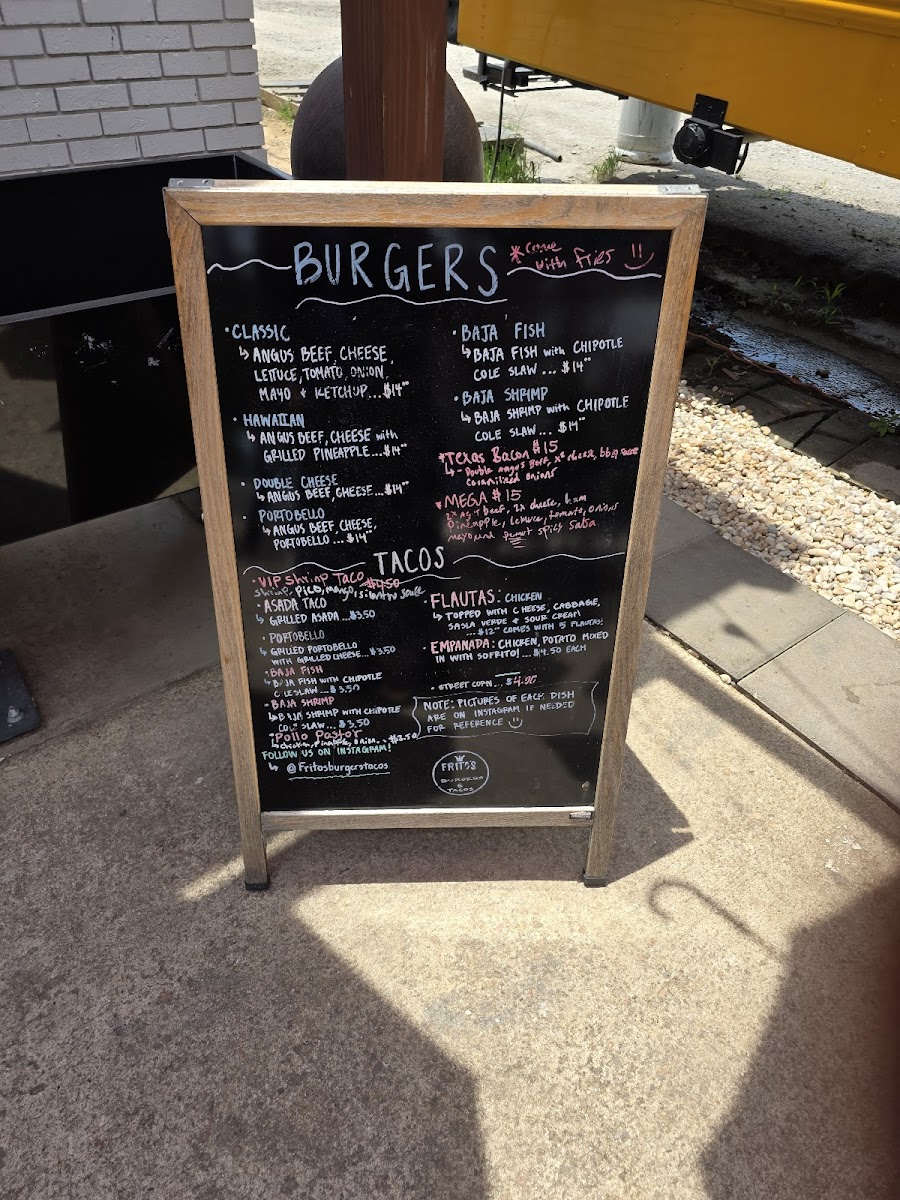 BURGERS
*come with fries
• CLASSIC
↳ ANGUS BEEF, CHEESE,
LETUCE, TOMATO, ONION,
MAYO + KETCHUP...$14""
• HAWAIIAN
↳ ANGUS BEEF, CHEESE with
GRILLED PINEAPPLE...$14""
• DOUBLE CHEESE
↳ ANGUS BEEF, CHEESE...$14""
• PORTOBELLO
↳ ANGUS BEEF, CHEESE,
PORTOBELLO ... $14""
• BAJA FISH
↳ BAJA FISH with CHIPOTLE
COLE SLAW ... $14""
• BAJA SHRIMP
↳ BAJA SHRIMP with CHIPOTLE
COLE SLAW ... $14""
*Texas Bacon $15
↳ - Double angus Beef, x2 cheese, bbq sauce
onions
MEGA $15
beef, 2x cheese, ham
Pineapple, letuce, tomato, onions
spicy salsa
TACOS
• VIP shrimp TACO $4.50
shrimp, pico, mango, sauce
• ASADA TACO
↳ GRILLED ASADA ...$3.50
• PORTOBELLO
↳ GRILLED PORTOBELLO
WITH GRILLED CHEESE...$3.50
• BAJA FISH
↳ BAJA FISH WITH CHIPOTLE
COLE SLAW ... $3.50
• BAJA SHRIMP
↳ BAJA SHRIMP WITH CHIPOTLE
COLE SLAW ... $3.50
*Pollo Pastor
↳ chicken, pineapple, onion...
FOLLOW US ON INSTAGRAM!
↳ @Fritosburgerstacos
• FLAUTAS: CHICKEN
↳ TOPPED WITH CHEESE, CABBAGE,
SASLA VERDE & SOUR CREAM
... $12"" COMES WITH 5 FLAUTAS!
EMPANADA: CHICKEN, POTATO MIXED
IN WITH SOFRITO! ... $4.50 EACH
• STREET CORN ... $4.00
NOTE: PICTURES OF EACH DISH
ARE ON INSTAGRAM IF NEEDED
FOR REFERENCE
FRITO'S
BURGERS
&
TACOS